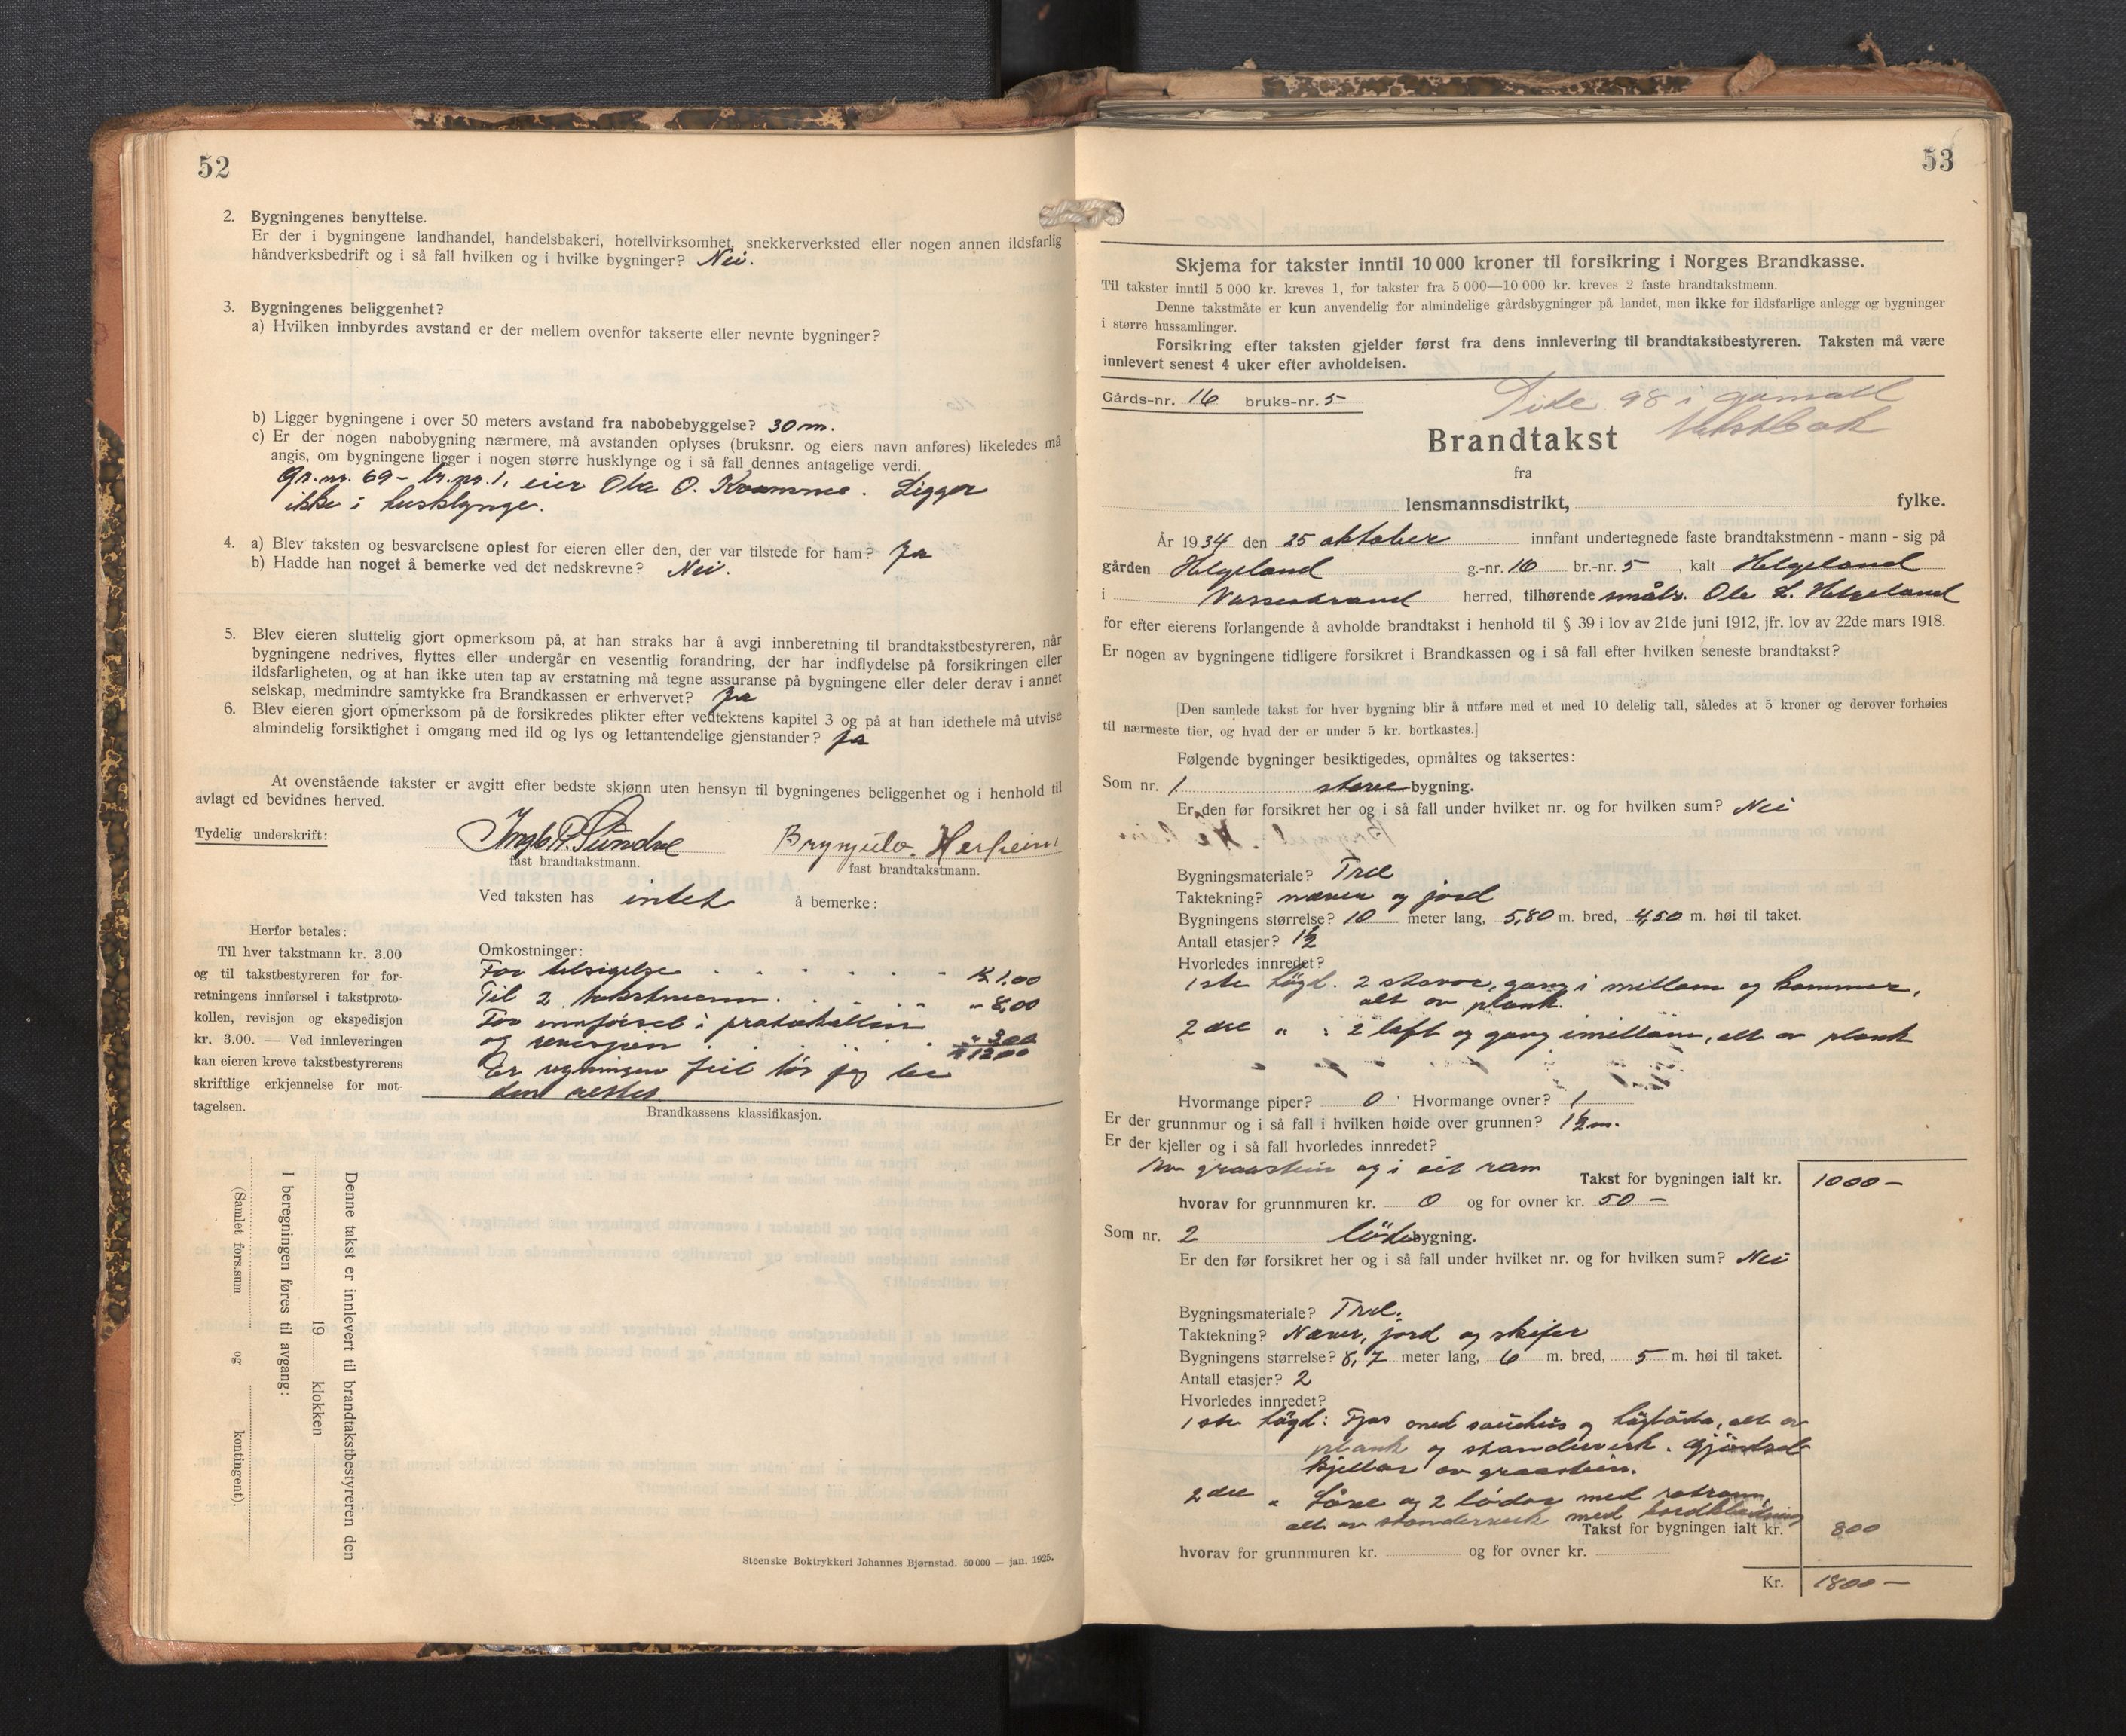 52
2. Bygningenes benyttelse.
Er der i bygningene landhandel, handelsbakeri, hotellvirksomhet, snekkerverksted eller nogen annen ildsfarlig
håndverksbedrift og i så fall hvilken og i hvilke bygninger? Nei.
3. Bygningenes beliggenhet?
a) Hvilken innbyrdes avstand er der mellem ovenfor takserte eller nevnte bygninger?
b) Ligger bygningene i over 50 meters avstand fra nabobebyggelse? 30 m.
c) Er der nogen nabobygning nærmere, må avstanden oplyses (bruksnr. og eiers navn anføres) likeledes må
angis, om bygningene ligger i nogen større husklynge og i så fall dennes antagelige verdi.
gr.nr. 69 - br.nr. 1, eier Ola O. Kvamme. Ligger
ikke i husklynge.
4. a) Blev taksten og besvarelsene oplest for eieren eller den, der var tilstede for ham? Ja
b) Hadde han noget å bemerke ved det nedskrevne? Nei.
5. Blev eieren sluttelig gjort opmerksom på, at han straks har å avgi innberetning til brandtakstbestyreren, når
bygningene nedrives, flyttes eller undergår en vesentlig forandring, der har indflydelse på forsikringen eller
ildsfarligheten, og at han ikke uten tap av erstatning må tegne assuranse på bygningene eller deler derav i annet
selskap, medmindre samtykke fra Brandkassen er erhvervet? Ja
6. Blev eieren gjort opmerksom på de forsikredes plikter efter vedtektens kapitel 3 og på at han idethele må utvise
almindelig forsiktighet i omgang med ild og lys og lettantendelige gjenstander? Ja
At ovenstående takster er avgitt efter bedste skjønn uten hensyn til bygningenes beliggenhet og i henhold til
avlagt ed bevidnes herved.
Tydelig underskrift: Ingb. P. Sundve Brynjulv. Herheim
fast brandtakstmann. fast brandtakstmann.
Ved taksten has intet å bemerke:
Herfor betales:
Til hver takstmann kr. 3.00
og til takstbestyreren for for-
retningens innførsel i takstproto-
kollen, revisjon og ekspedisjon
kr. 3.00. — Ved innleveringen
kan eieren kreve takstbestyrerens
skriftlige erkjennelse for mot-
tagelsen.
Omkostninger:
For tilsigelse kr 1,00
Til 2 takstmenn " 8,00
For innførsel i protokollen
og revisjon " 3,00
kr 12,00
Er regningen feil bør jeg lee
den rettet.
Brandkassens klassifikasjon.
Denne takst er innlevert til brandtakstbestyreren den
19 klokken
I beregningen føres til avgang:
(Samlet fors.sum og kontingent).
Steenske Boktrykkeri Johannes Bjørnstad. 50 000 — jan. 1925.
53
Skjema for takster inntil 10 000 kroner til forsikring i Norges Brandkasse.
Til takster inntil 5 000 kr. kreves 1, for takster fra 5 000—10 000 kr. kreves 2 faste brandtakstmenn.
Denne takstmåte er kun anvendelig for almindelige gårdsbygninger på landet, men ikke for ildsfarlige anlegg og bygninger
i større hussamlinger.
Forsikring efter taksten gjelder først fra dens innlevering til brandtakstbestyreren. Taksten må være
innlevert senest 4 uker efter avholdelsen.
Gårds-nr. 16 bruks-nr. 5
Side 98 i gamall
takstbok
Brandtakst
fra
lensmannsdistrikt, fylke.
År 1934 den 25 oktober innfant undertegnede faste brandtakstmenn - mann - sig på
gården Helgeland g.-nr. 16 br.-nr. 5, kalt Helgeland
i Vossestrand herred, tilhørende småbr. Ole L. Helgeland
for efter eierens forlangende å avholde brandtakst i henhold til § 39 i lov av 21de juni 1912, jfr. lov av 22de mars 1918.
Er nogen av bygningene tidligere forsikret i Brandkassen og i så fall efter hvilken seneste brandtakst?
[Den samlede takst for hver bygning blir å utføre med et med 10 delelig tall, således at 5 kroner og derover forhøies
til nærmeste tier, og hvad der er under 5 kr. bortkastes.]
Følgende bygninger besiktigedes, opmåltes og taksertes:
Som nr. 1 stove bygning.
Er den før forsikret her og i så fall under hvilket nr. og for hvilken sum? Nei
Bygningsmateriale? Tree
Taktekning? næver og jord
Bygningens størrelse? 10 meter lang, 5,80 m. bred, 4,50 m. høi til taket.
Antall etasjer? 1½
Hvorledes innredet?
1ste høgd. 2 stovor, gang i millom og kammer,
alt av plank.
2dre " : 2 loft og gang imillom, alt av plank
Hvormange piper? 0 Hvormange ovner? 1
Er der grunnmur og i så fall i hvilken høide over grunnen? 1½ m.
Er der kjeller og i så fall hvorledes innredet?
Av graastein og i eit rom Takst for bygningen ialt kr. 1000 -
hvorav for grunnmuren kr. 0 og for ovner kr. 50 -
Som nr. 2 løde bygning.
Er den før forsikret her og i så fall under hvilket nr. og for hvilken sum? Nei
Bygningsmateriale? Tree.
Taktekning? Næver, jord og skifer
Bygningens størrelse? 8,7 meter lang, 6 m. bred, 5 m. høi til taket.
Antall etasjer? 2
Hvorledes innredet?
1ste høgd: Fjos med sauehus og høyløda, alt av
plank og standverk. Gjødsel
kjellar av graastein.
2dre " Låve og 2 lødor med
alt av standverk med bordkledning
Takst for bygningen ialt kr. 800
hvorav for grunnmuren kr. og for ovner kr.
Kr. 1800 -